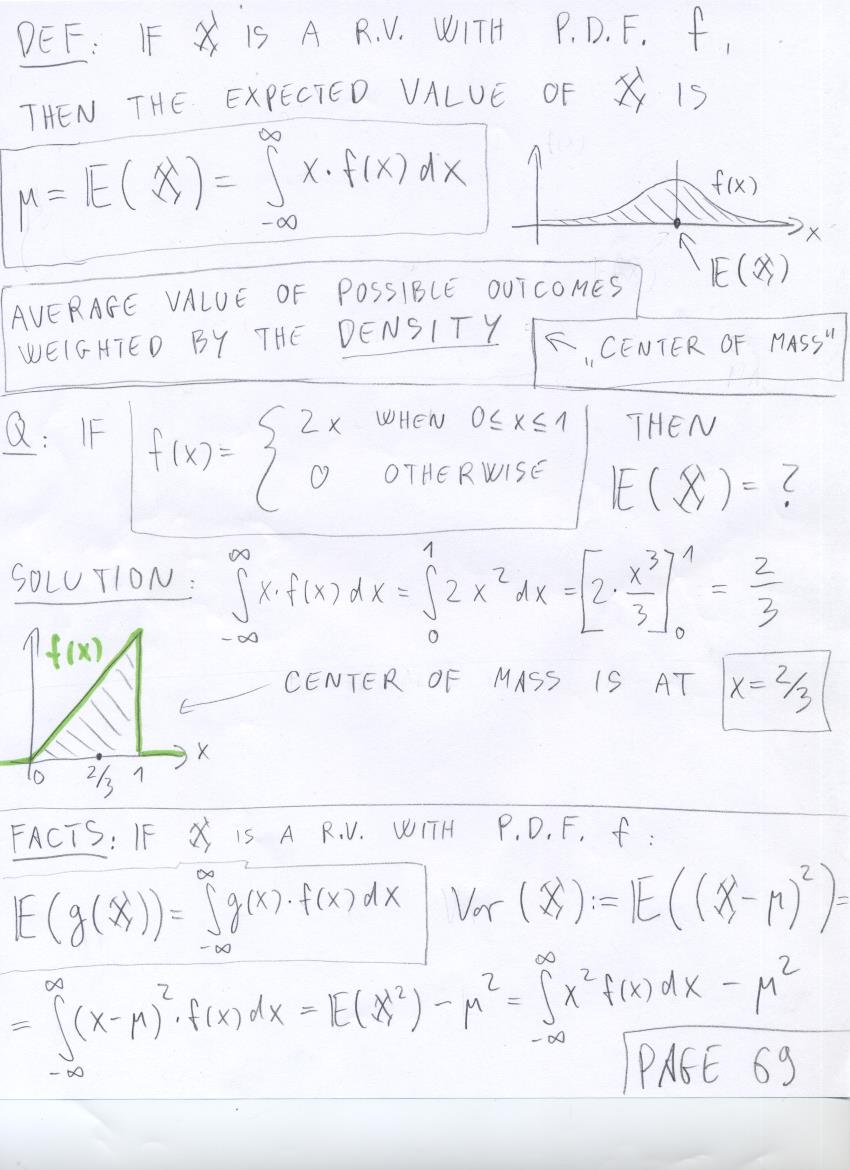 DEF: IF X IS A R.V. WITH P.D.F. f,
THEN THE EXPECTED VALUE OF X IS
μ = E(X) = ∫_{-∞}^{∞} x · f(x) dx
f(x)
x
E(X)
AVERAGE VALUE OF POSSIBLE OUTCOMES
WEIGHTED BY THE DENSITY
← „CENTER OF MASS"
Q: IF f(x) = { 2x WHEN 0 ≤ x ≤ 1 THEN
0 OTHERWISE E(X) = ?
SOLUTION: ∫_{-∞}^{∞} x · f(x) dx = ∫_0^1 2x² dx = [2 · x³/3]_0^1 = 2/3
f(x)
CENTER OF MASS IS AT x = 2/3
0 2/3 1 x
FACTS: IF X IS A R.V. WITH P.D.F. f:
E(g(X)) = ∫_{-∞}^{∞} g(x) · f(x) dx Var(X) := E((X-μ)²) =
= ∫_{-∞}^{∞} (x-μ)² · f(x) dx = E(X²) - μ² = ∫_{-∞}^{∞} x² f(x) dx - μ²
PAGE 69